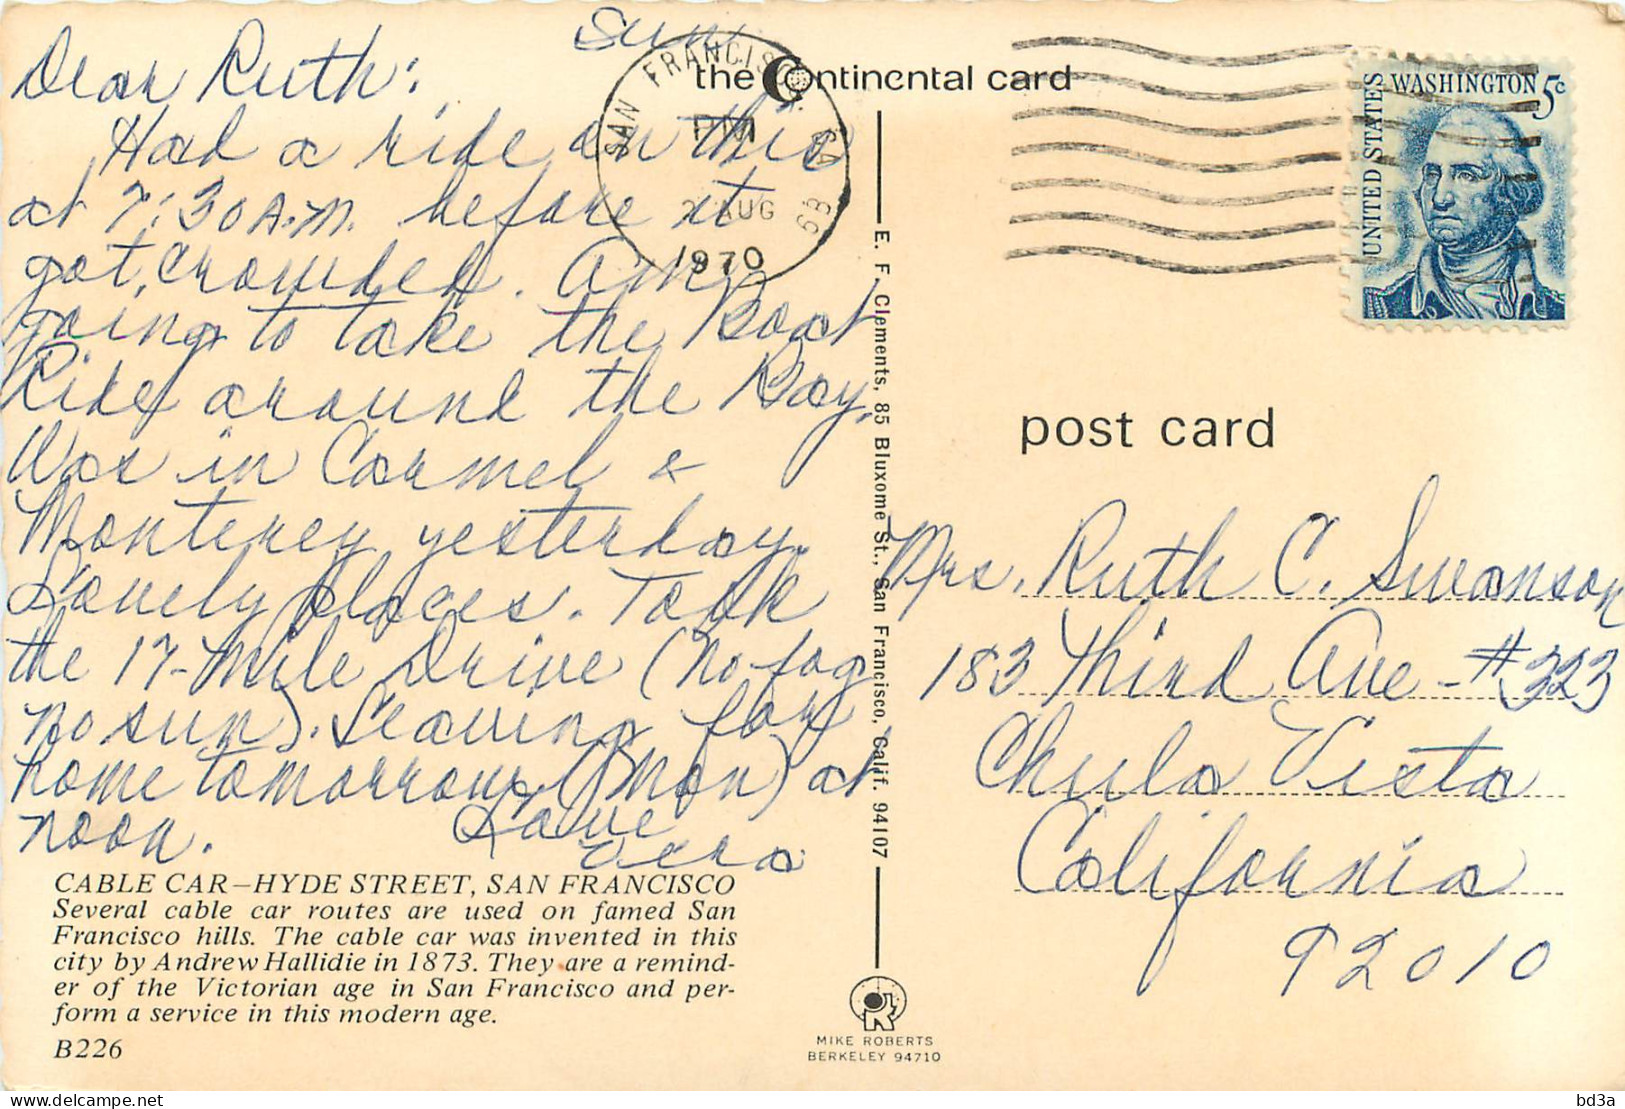 Sun
Dear Ruth:
Had a ride on this
at 7:30 A.M. before it
got crowded. Am
going to take the Boat
Ride around the Bay.
Was in Carmel &
Monterey yesterday.
Lovely places. Took
the 17-Mile Drive (no fog
no sun). Leaving for
home tomorrow (Mon) at
noon. Love
Vera
CABLE CAR—HYDE STREET, SAN FRANCISCO
Several cable car routes are used on famed San
Francisco hills. The cable car was invented in this
city by Andrew Hallidie in 1873. They are a remind-
er of the Victorian age in San Francisco and per-
form a service in this modern age.
B226
the Continental card
SAN FRANCISCO, CA
PM
AUG
1970
E. F. Clements, 85 Bluxome St., San Francisco, Calif. 94107
MIKE ROBERTS
BERKELEY 94710
UNITED STATES
WASHINGTON 5c
post card
Mrs. Ruth C. Swanson
183 Third Ave - #323
Chula Vista
California
92010
bd3a
delcampe.net